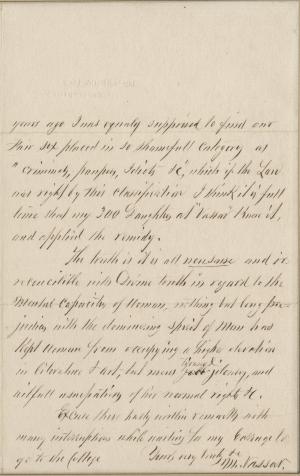 years ago I was equally supprised to find our
Fair Sex placed in so Shamefull Category as
"criminals, paupers, Idiots &c, which if the Law
was right by this Classification I think it's full
time that my 300 Daughters at "Vassar" knew it,
and applied the remidy.
The truth is it is all nonsense and ir
reconcilible with Divine truth in regard to the
Mental Capacity of Woman, nothing but long pre-
judice, with the domineering spirit of Man has
kept Woman from occupying a higher elevation
in Literature & art, but mens
jelousy, and
wilfull usurpation of her normal rights &c.
Excuse these hasty written remarks with
many interruptions while waiting for my Carriage to
go to the College
Yours very truly &c
M. Vassar.